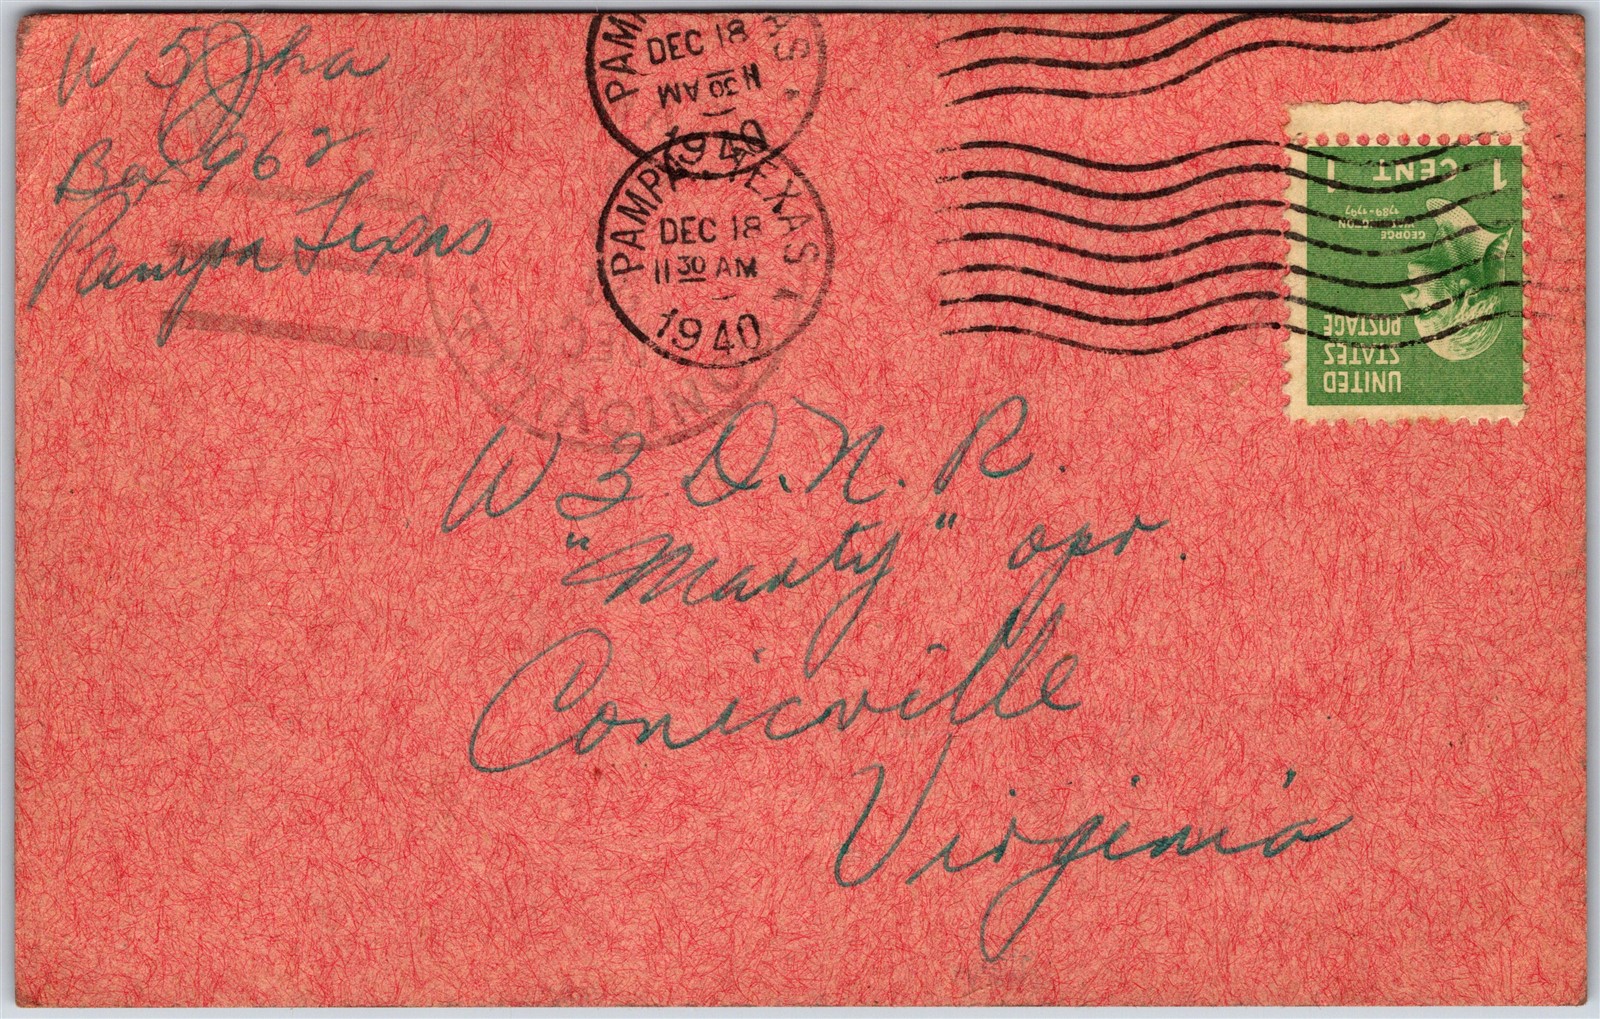 W5Jha
Box 962
Pampa Texas
PAM AS
DEC 18
11 30 AM
1940
PAMPA TEXAS
DEC 18
11 30 AM
1940
CONICVILLE
DEC
1 CENT 1
GEORGE
WASHINGTON
1789-1797
UNITED
STATES
POSTAGE
W3.D.N.R.
"Marty" opr.
Conicville
Virginia